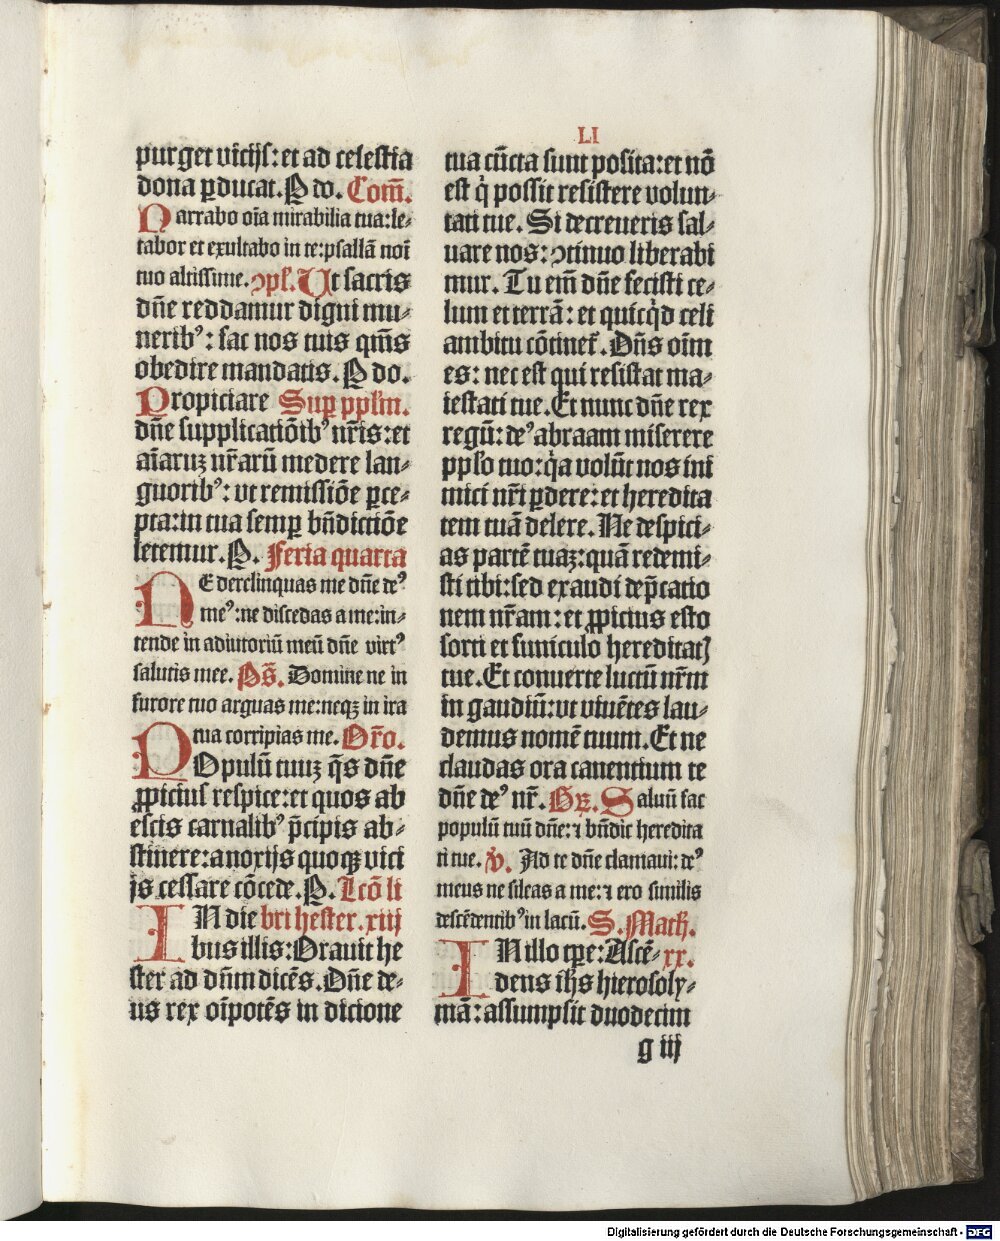 LI
purget vicijs: et ad celestia
dona ꝑducat. P do. Com̄.
Narrabo oīa mirabilia tua: le⸗
tabor et exultabo in te: psallā noī
tuo altissime. ↄpl̄. Ut sacris
dn̄e reddamur digni mu⸗
neribꝰ: fac nos tuis qm̄s
obedire mandatis. P do.
Propiciare Suꝑ ppl̄m.
dn̄e supplicatiōibꝰ nr̄is: et
aīaruꝫ nr̄arū medere lan⸗
guoribꝰ: vt remissiōe ꝑce⸗
pta: in tua semꝑ bn̄dictiōe
letemur. P. Feria quarta
NE derelinquas me dn̄e deꝰ
meꝰ: ne discedas a me: in⸗
tende in adiutoriū meū dn̄e virtꝰ
salutis mee. Ps̄. Domine ne in
furore tuo arguas me: neqꝫ in ira
tua corripias me. Or̄o.
POpulū tuuꝫ q̄s dn̄e
ꝓpicius respice: et quos ab
escis carnalibꝰ p̄cipis ab⸗
stinere: a noxijs quoqꝫ vici
js cessare cōcede. P. Lcō li
IN die bri hester. xiij
bus illis: Orauit he
ster ad dn̄m dicēs. Dn̄e de⸗
us rex oīpotēs in dicione
tua cūcta sunt posita: et nō
est q̇ possit resistere volun⸗
tati tue. Si decreueris sal⸗
uare nos: ↄtinuo liberabi
mur. Tu em̄ dn̄e fecisti ce⸗
lum et terrā: et quicq̇d celi
ambitu cōtinet̄. Dn̄s oīm
es: nec est qui resistat ma⸗
iestati tue. Et nunc dn̄e rex
regū: deꝰ abraam miserere
pplo tuo: q̇a volūt nos ini
mici nr̄i ꝑdere: et heredita
tem tuā delere. Ne despici⸗
as partē tuaꝫ: quā redemi⸗
sti tibi: sed exaudi dep̄catio
nem nr̄am: et ꝓpicius esto
sorti et funiculo hereditatꝭ
tue. Et conuerte luctū nr̄m
in gaudiū: vt viuētes lau⸗
demus nomē tuum. Et ne
claudas ora canentium te
dn̄e deꝰ nr̄. Gr̄. Saluū fac
populū tuū dn̄e: ⁊ bn̄dic heredita
ti tue. v̇. Ad te dn̄e clamaui: deꝰ
meus ne sileas a me: ⁊ ero similis
descēdentibꝰ in lacū. S. Math.
IN illo tꝑe: Ascē⸗ xx.
dens ih̄s hierosoly⸗
mā: assumpsit duodecim
g iij
Digitalisierung gefördert durch die Deutsche Forschungsgemeinschaft - DFG